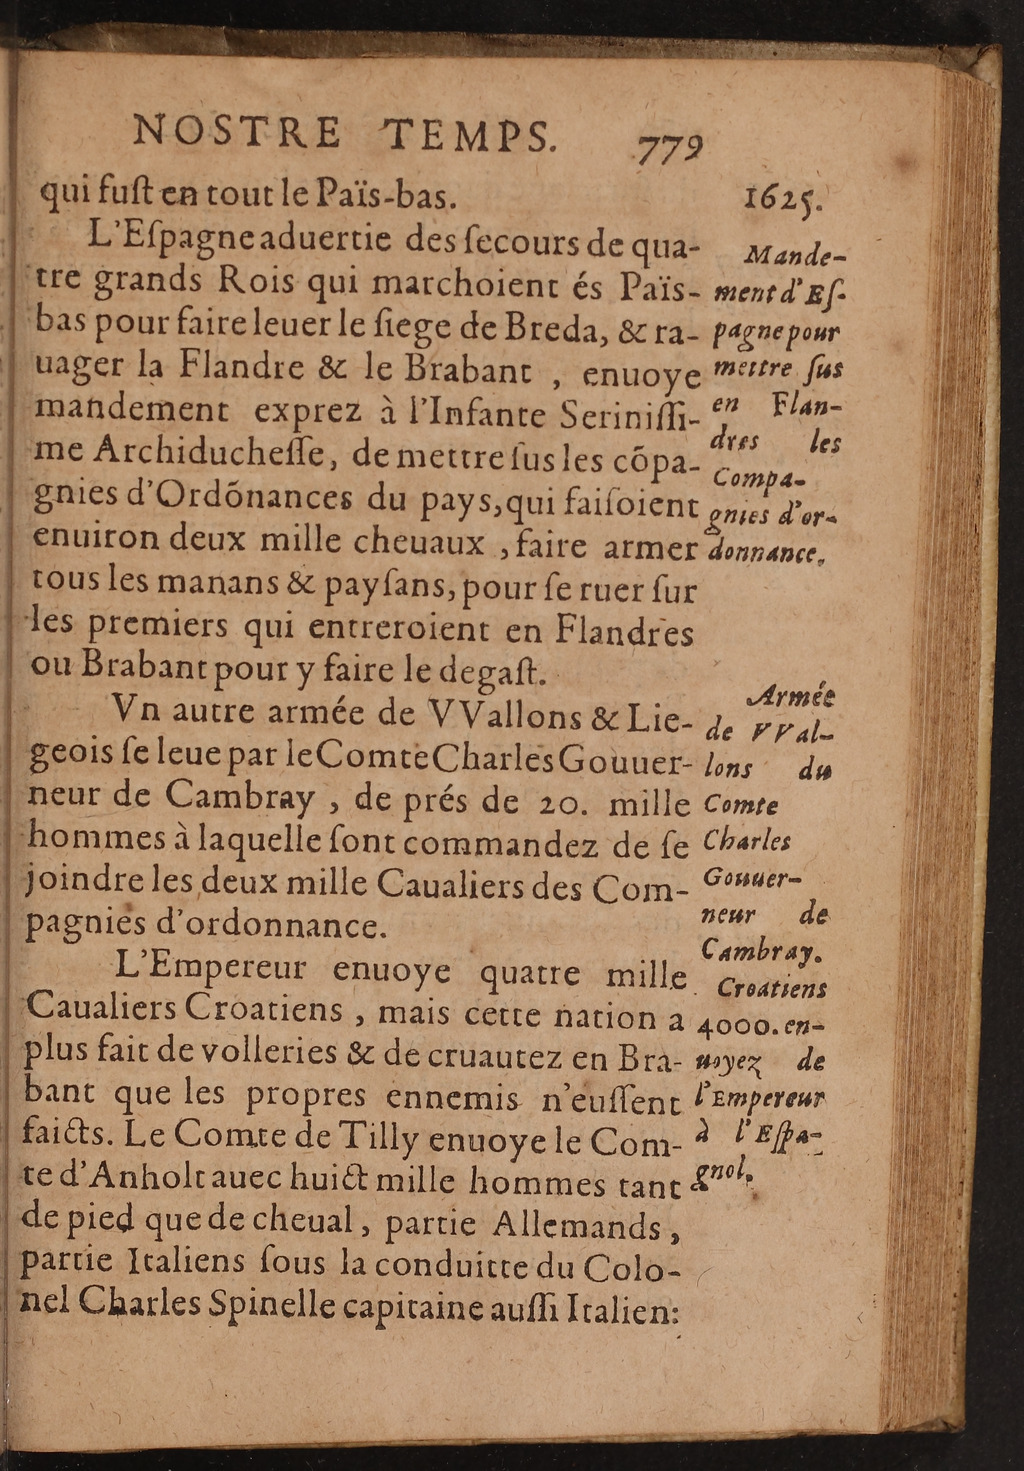 NOSTRE TEMPS. 779
qui fuſt en tout le Païs-bas.
L'Eſpagne aduertie des ſecours de qua-
tre grands Rois qui marchoient és Païs-
bas pour faire leuer le ſiege de Breda, & ra-
uager la Flandre & le Brabant , enuoye
mandement exprez à l'Infante Seriniſſi-
me Archiducheſſe, de mettre ſus les cõpa-
gnies d'Ordõnances du pays, qui faiſoient
enuiron deux mille cheuaux , faire armer
tous les manans & payſans, pour ſe ruer ſur
les premiers qui entreroient en Flandres
ou Brabant pour y faire le degaſt.
Vn autre armée de VVallons & Lie-
geois ſe leue par le Comte Charles Gouuer-
neur de Cambray , de prés de 20. mille
hommes à laquelle ſont commandez de ſe
joindre les deux mille Caualiers des Com-
pagnies d'ordonnance.
L'Empereur enuoye quatre mille
Caualiers Croatiens , mais cette nation a
plus fait de volleries & de cruautez en Bra-
bant que les propres ennemis n'euſſent
faicts. Le Comte de Tilly enuoye le Com-
te d'Anholt auec huict mille hommes tant
de pied que de cheual , partie Allemands ,
partie Italiens ſous la conduitte du Colo-
nel Charles Spinelle capitaine auſſi Italien:
1625.
Mande-
ment d'Eſ-
pagne pour
mettre ſus
en Flan-
dres les
Compa-
gnies d'or-
donnance.
Armée
de VVal-
lons du
Comte
Charles
Gouuer-
neur de
Cambray.
Croatiens
4000. en-
uoyez de
l'Empereur
à l'Eſpa-
gnol.